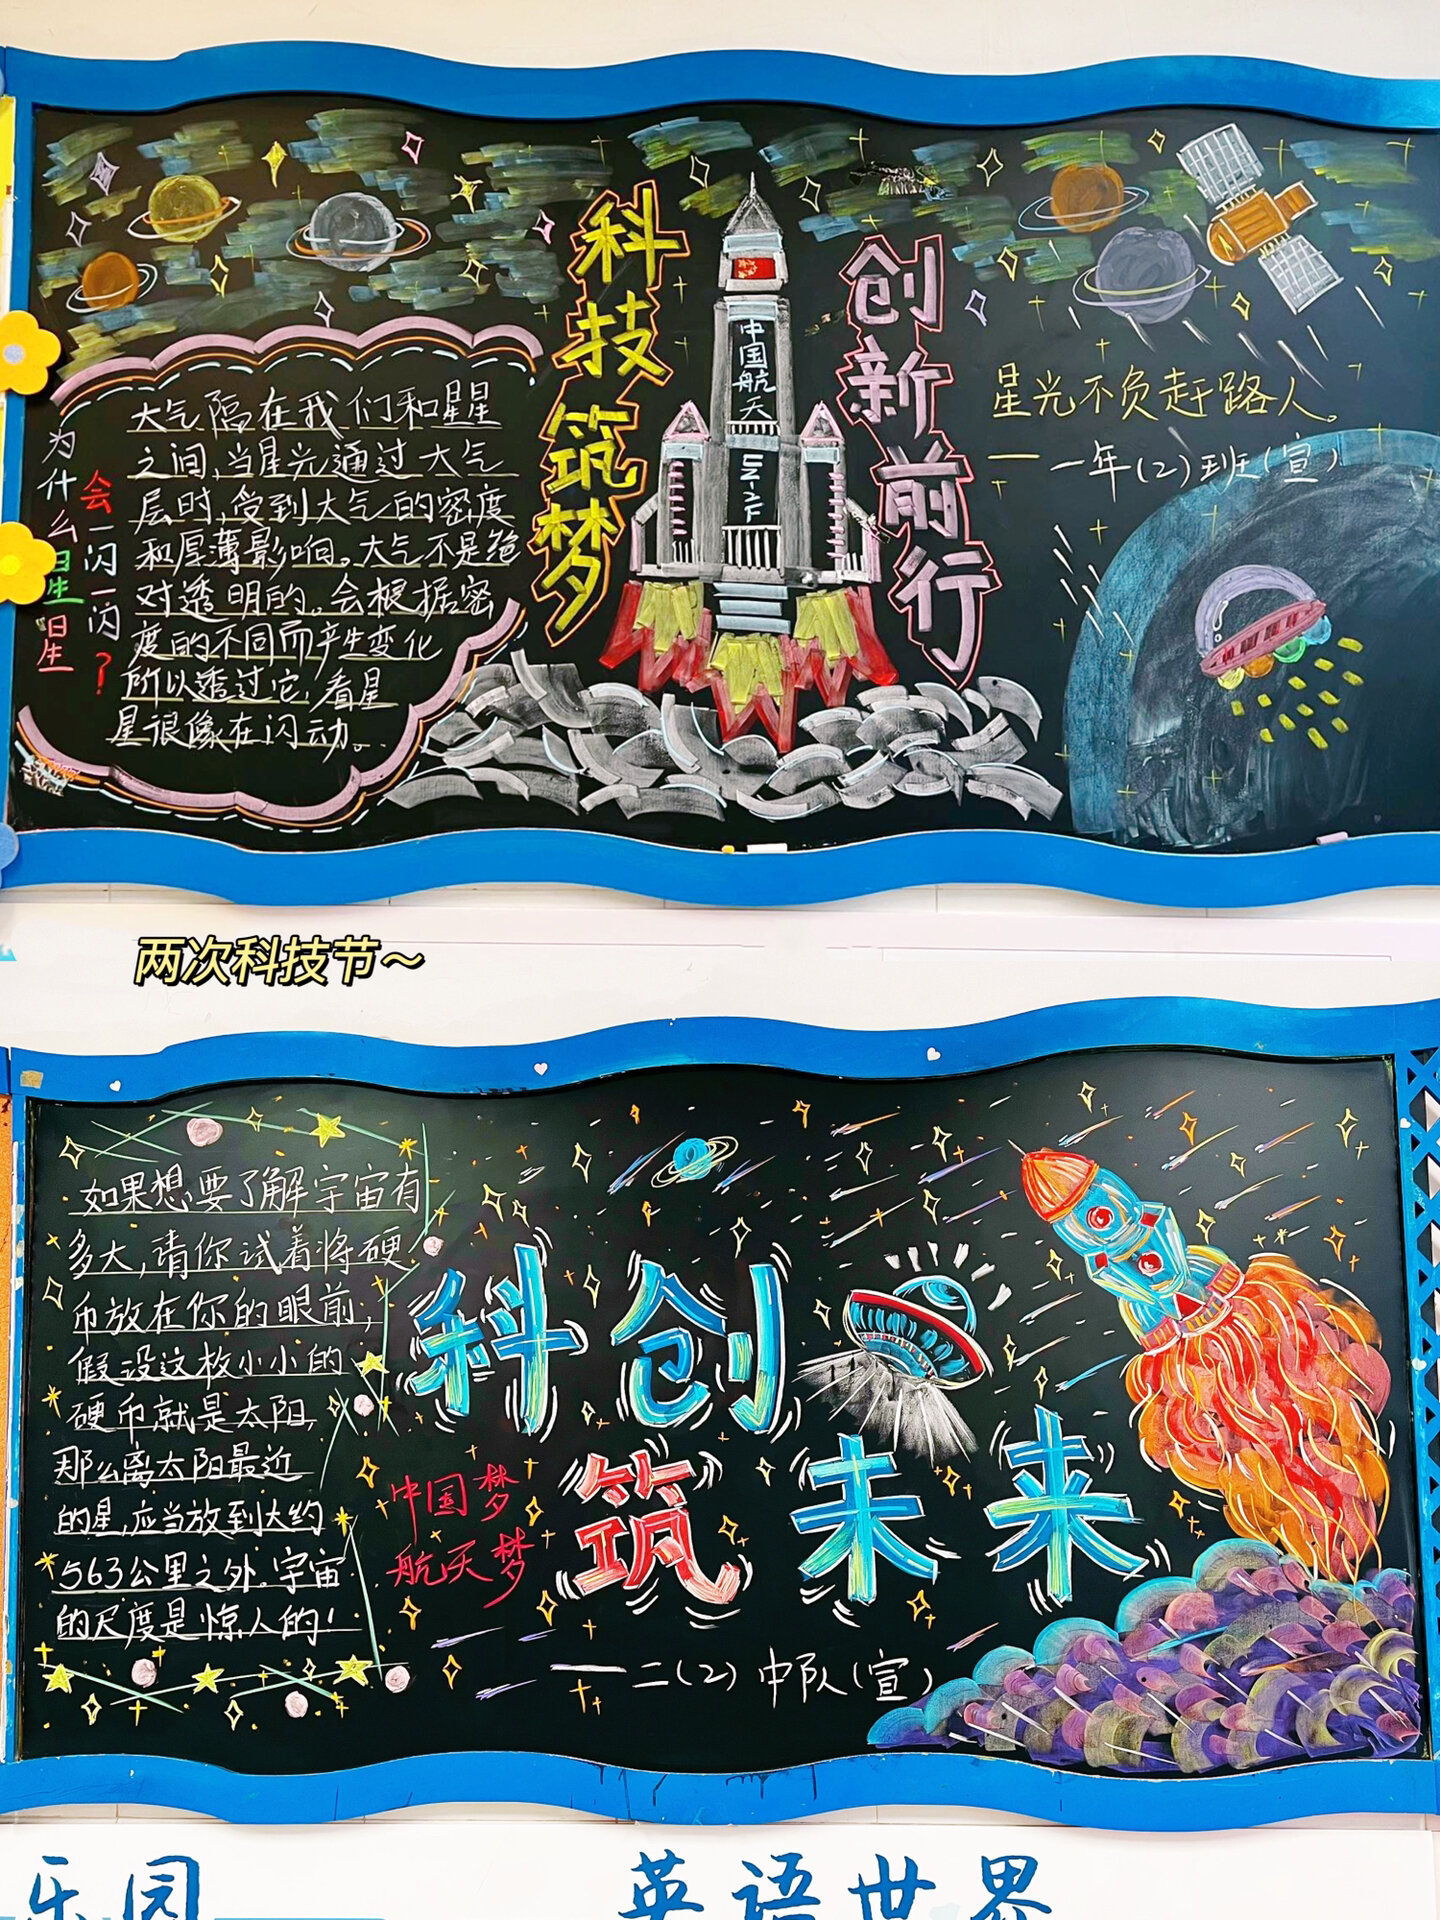 科技筑梦
创新前行
中国航天
为什么星星
会一闪一闪？
大气隔在我们和星星
之间,当星光通过大气
层时,受到大气的密度
和厚薄影响。大气不是绝
对透明的。会根据密
度的不同而产生变化
所以透过它,看星
星很像在闪动。
星光不负赶路人。
——一年(2)班(宣)
两次科技节～
如果想要了解宇宙有
多大,请你试着将硬
币放在你的眼前,
假设这枚小小的
硬币就是太阳,
那么离太阳最近
的星,应当放到大约
563公里之外。宇宙
的尺度是惊人的!
科创
筑未来
中国梦
航天梦
——二(2)中队(宣)
乐园
英语世界